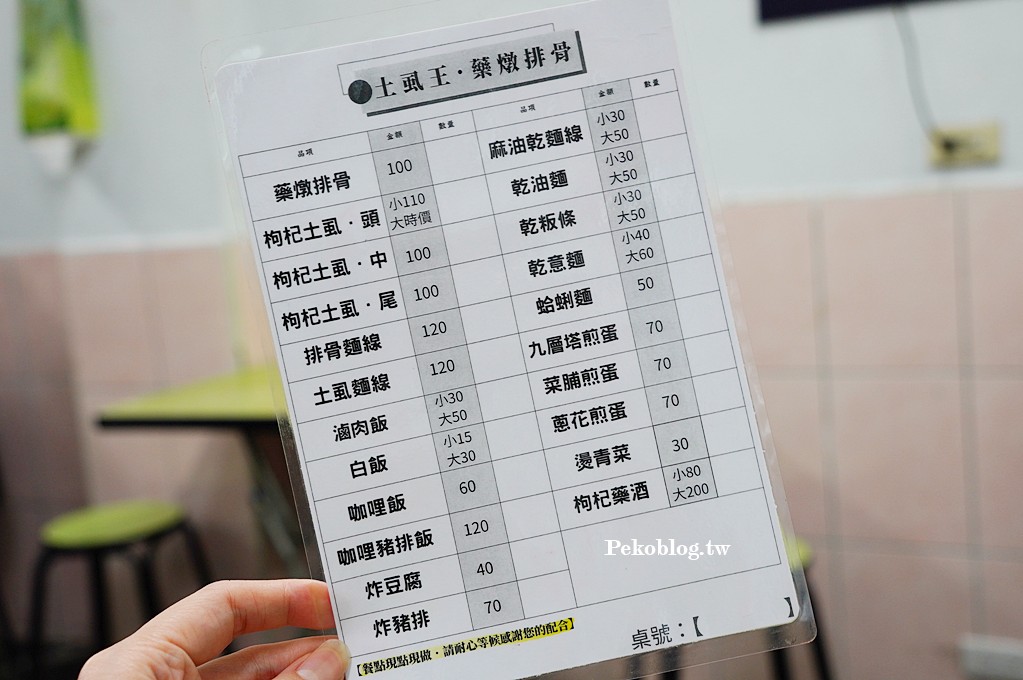 土虱王·藥燉排骨
品項 金額 數量
藥燉排骨 100
枸杞土虱·頭 小110 大時價
枸杞土虱·中 100
枸杞土虱·尾 100
排骨麵線 120
土虱麵線 120
滷肉飯 小30 大50
白飯 小15 大30
咖哩飯 60
咖哩豬排飯 120
炸豆腐 40
炸豬排 70
品項 金額 數量
麻油乾麵線 小30 大50
乾油麵 小30 大50
乾粄條 小30 大50
乾意麵 小40 大60
蛤蜊麵 50
九層塔煎蛋 70
菜脯煎蛋 70
蔥花煎蛋 70
燙青菜 30
枸杞藥酒 小80 大200
Pekoblog.tw
【餐點現點現做·請耐心等候感謝您的配合】
桌號：【 】